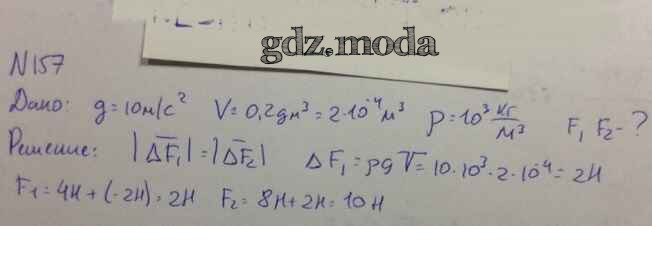 gdz.moda
N157
Дано: g=10м/с² V=0,2дм³=2·10⁻⁴м³ ρ=10³ кг/м³ F₁ F₂-?
Решение: |ΔF̅₁|=|ΔF̅₂| ΔF₁=ρgV=10·10³·2·10⁻⁴=2Н
F₁=4Н+(-2Н)=2Н F₂=8Н+2Н=10Н